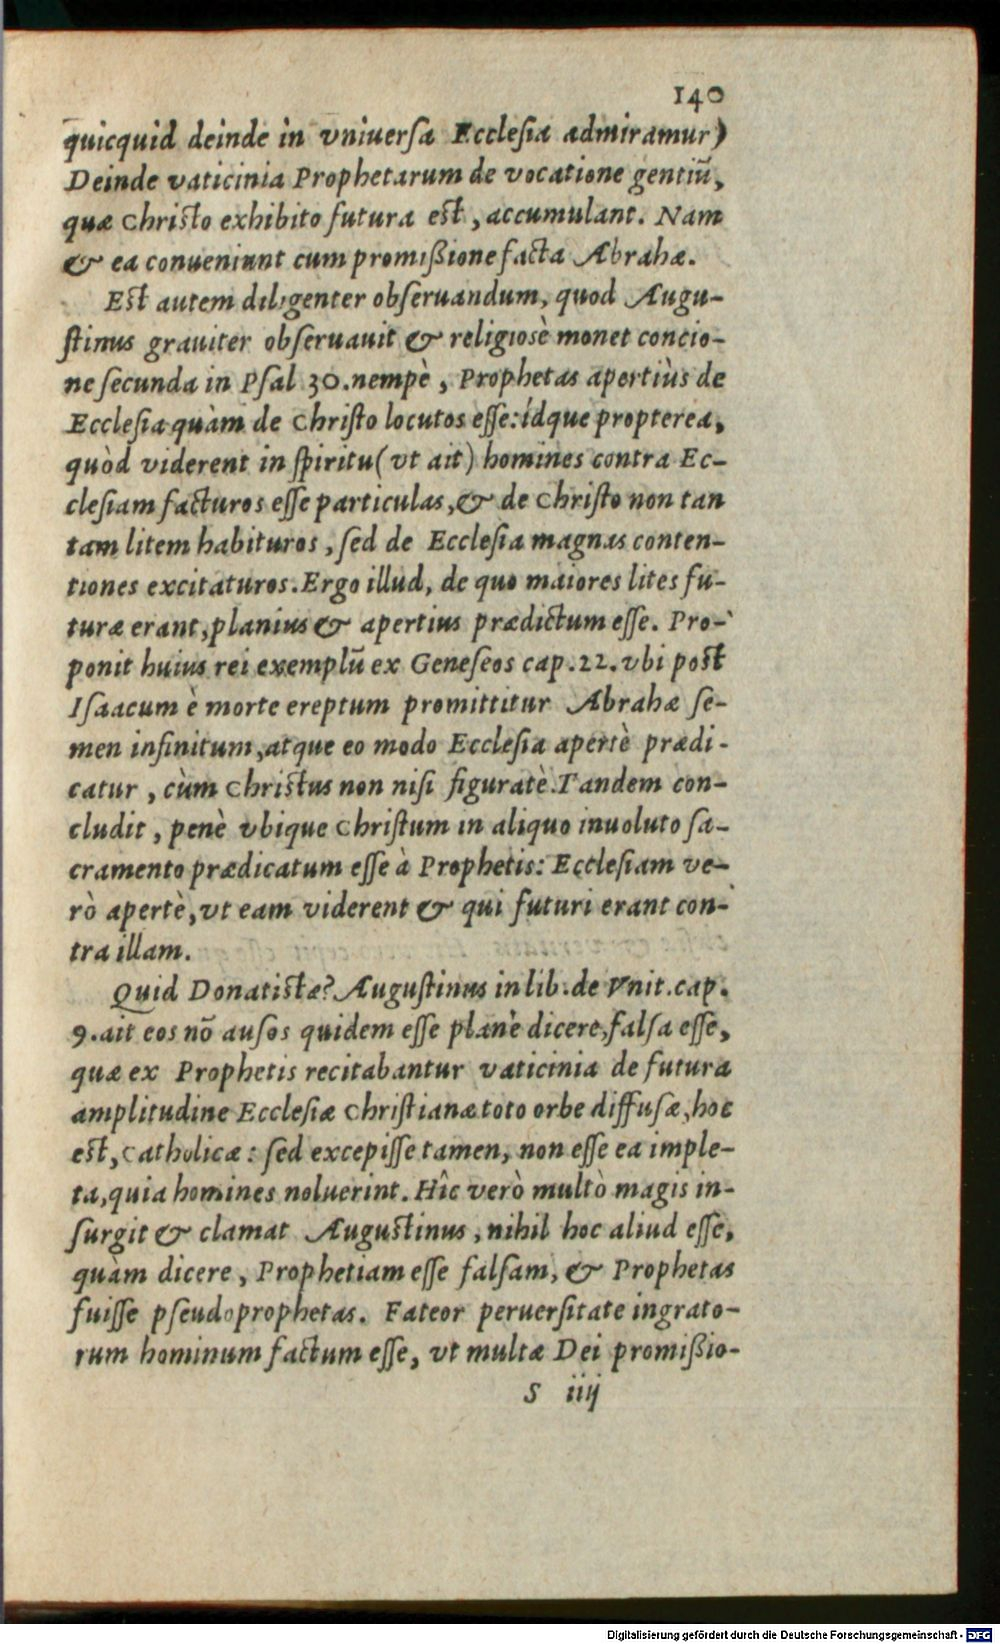 140
quicquid deinde in vniuersa Ecclesia admiramur)
Deinde vaticinia Prophetarum de vocatione gentiũ,
quæ Christo exhibito futura est, accumulant. Nam
& ea conueniunt cum promißione facta Abrahæ.
Est autem diligenter obseruandum, quod Augu-
stinus grauiter obseruauit & religiosè monet concio-
ne secunda in Psal 30. nempè, Prophetas apertiùs de
Ecclesia quàm de Christo locutos esse: idque propterea,
quòd viderent in spiritu (vt ait) homines contra Ec-
clesiam facturos esse particulas, & de Christo non tan
tam litem habituros, sed de Ecclesia magnas conten-
tiones excitaturos. Ergo illud, de quo maiores lites fu-
turæ erant, planius & apertius prædictum esse. Pro-
ponit huius rei exemplũ ex Geneseos cap. 22. vbi post
Isaacum è morte ereptum promittitur Abrahæ se-
men infinitum, atque eo modo Ecclesia apertè prædi-
catur, cùm Christus non nisi figuratè. Tandem con-
cludit, penè vbique Christum in aliquo inuoluto sa-
cramento prædicatum esse à Prophetis: Ecclesiam ve-
rò apertè, vt eam viderent & qui futuri erant con-
tra illam.
Quid Donatistæ? Augustinus in lib. de Vnit. cap.
9. ait eos nõ ausos quidem esse planè dicere, falsa esse,
quæ ex Prophetis recitabantur vaticinia de futura
amplitudine Ecclesiæ Christianæ toto orbe diffusæ, hoc
est, Catholicæ: sed excepisse tamen, non esse ea imple-
ta, quia homines noluerint. Hîc verò multò magis in-
surgit & clamat Augustinus, nihil hoc aliud esse,
quàm dicere, Prophetiam esse falsam, & Prophetas
fuisse pseudoprophetas. Fateor peruersitate ingrato-
rum hominum factum esse, vt multæ Dei promißio-
S iiij
Digitalisierung gefördert durch die Deutsche Forschungsgemeinschaft - DFG